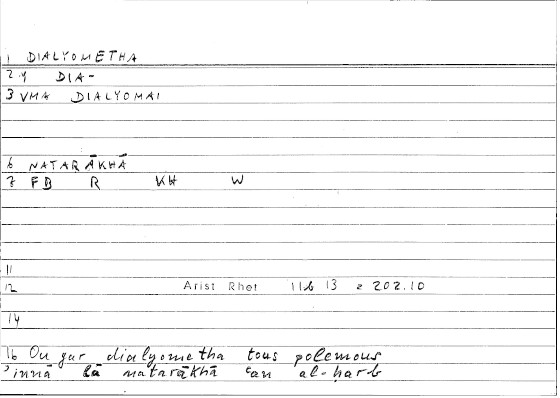 1 DIALYOMETHA
2 Y DIA-
3 VMA DIALYOMAI
6 NATARĀKHĀ
7 FB R KH W
11
12 Arist Rhet 11b 13 = 202.10
14
16 Ou gar dialyometha tous polemous
'innā lā natarākhā ʿan al-ḥarb